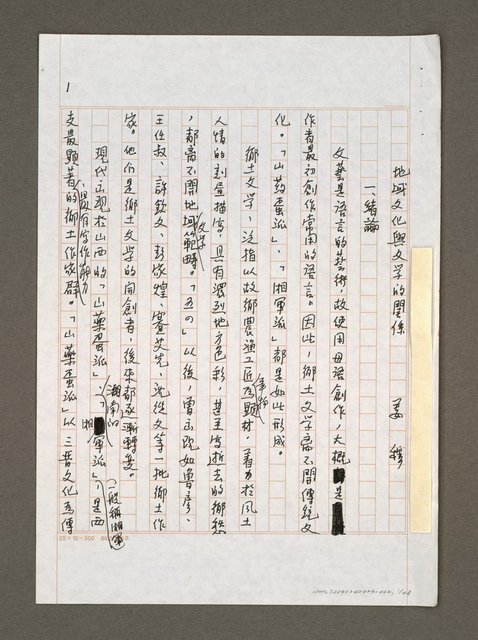 1
地域文化與文學的關係
姜穆
一、緒論
文藝是語言的藝術,故使用母語創作,大概是
作者最初創作常用的語言。因此,鄉土文學需不開傳統文
化。「山葯蛋派」、「湘軍派」都是如此形成。
鄉土文學,泛指以故鄉農漁工匠為題材,著力於風土
人情的刻畫描寫,具有濃烈地方色彩,甚至寫逝去的鄉愁
,都需不開地域文學範疇。「五四」以後,曾出現如魯彥、
王任叔、許欽文、彭家煌、蹇先艾、沈從文等一批鄉土作
家。他們是鄉土文學的開創者,後來都逐漸轉變。
現代出現於山西的「山藥蛋派」,湖南的「湘軍派」(一般稱湘軍),是兩
支最具有寫作能力,最顯著的鄉土作家群。「山藥蛋派」以三晉文化為傳
25×10=300
NMTL20090240323-002, 1/48